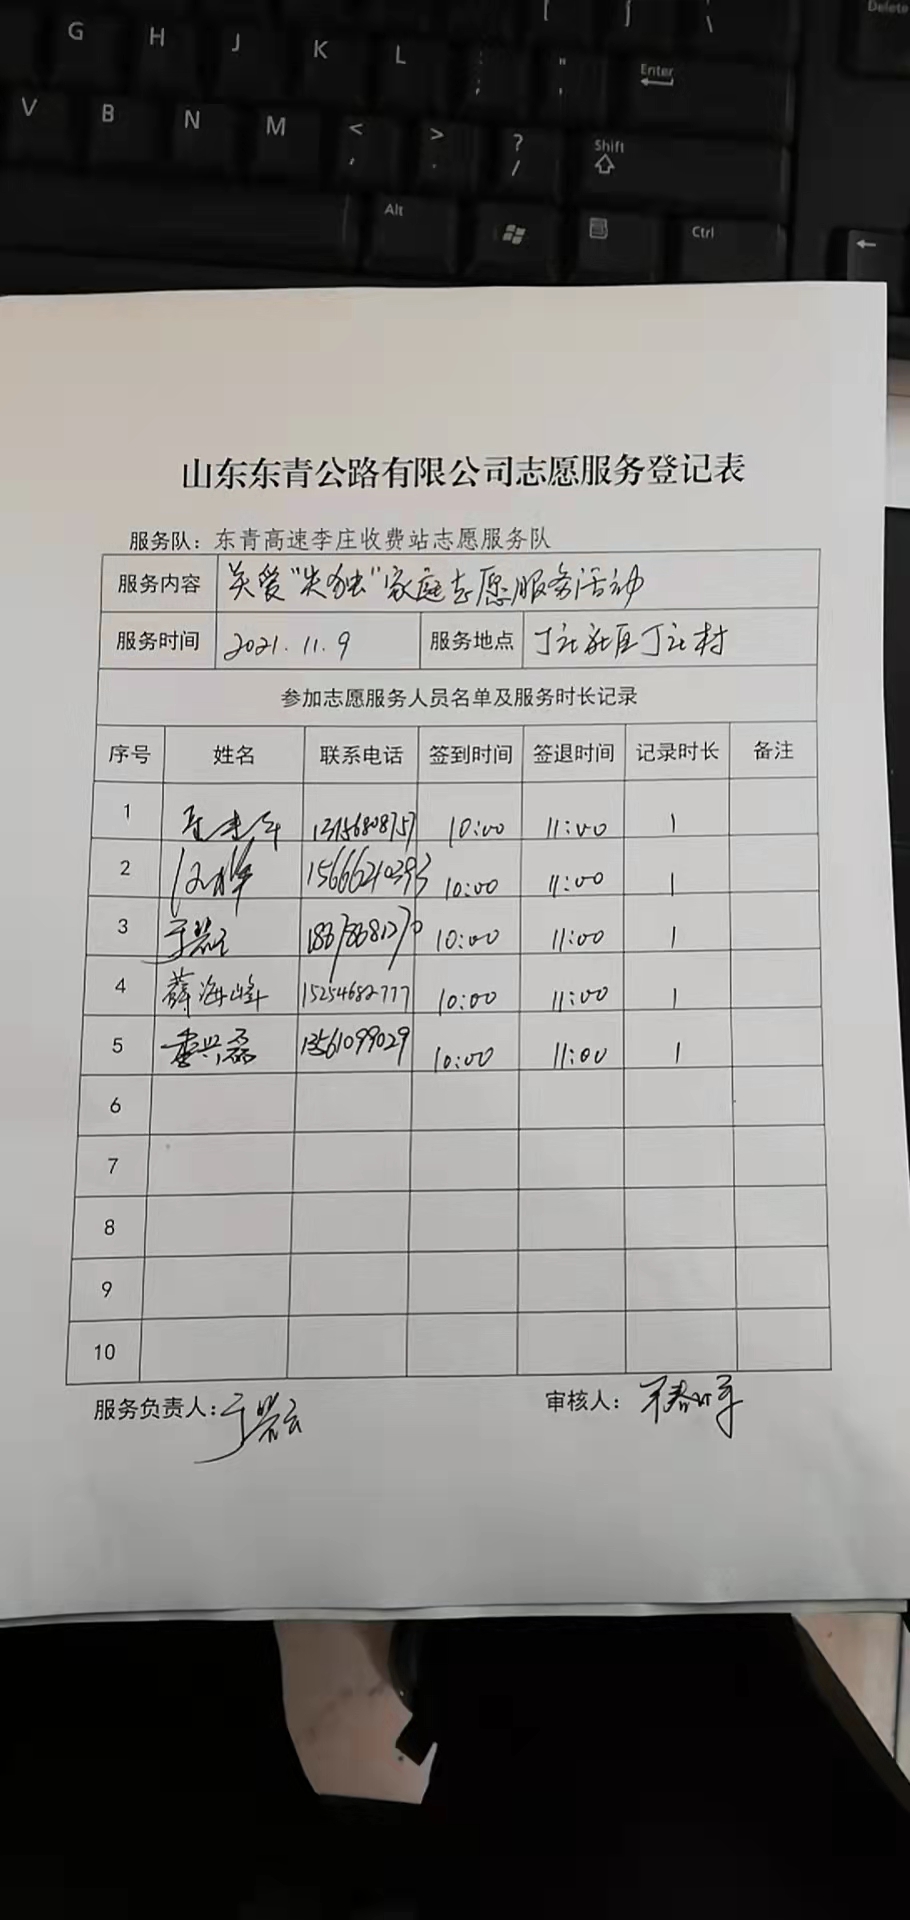 Delete
G H J K L : ; " ' Enter
V B N M < , > . ? / Shift
Alt Ctrl
山东东青公路有限公司志愿服务登记表
服务队：东青高速李庄收费站志愿服务队
服务内容 关爱"失独"家庭志愿服务活动
服务时间 2021.11.9 服务地点 丁庄社区丁庄村
参加志愿服务人员名单及服务时长记录
序号 姓名 联系电话 签到时间 签退时间 记录时长 备注
1 10:00 11:00 1
2 15666210393 10:00 11:00 1
3 10:00 11:00 1
4 薛海峰 15254682777 10:00 11:00 1
5 季兴磊 13561099029 10:00 11:00 1
6
7
8
9
10
服务负责人： 审核人：